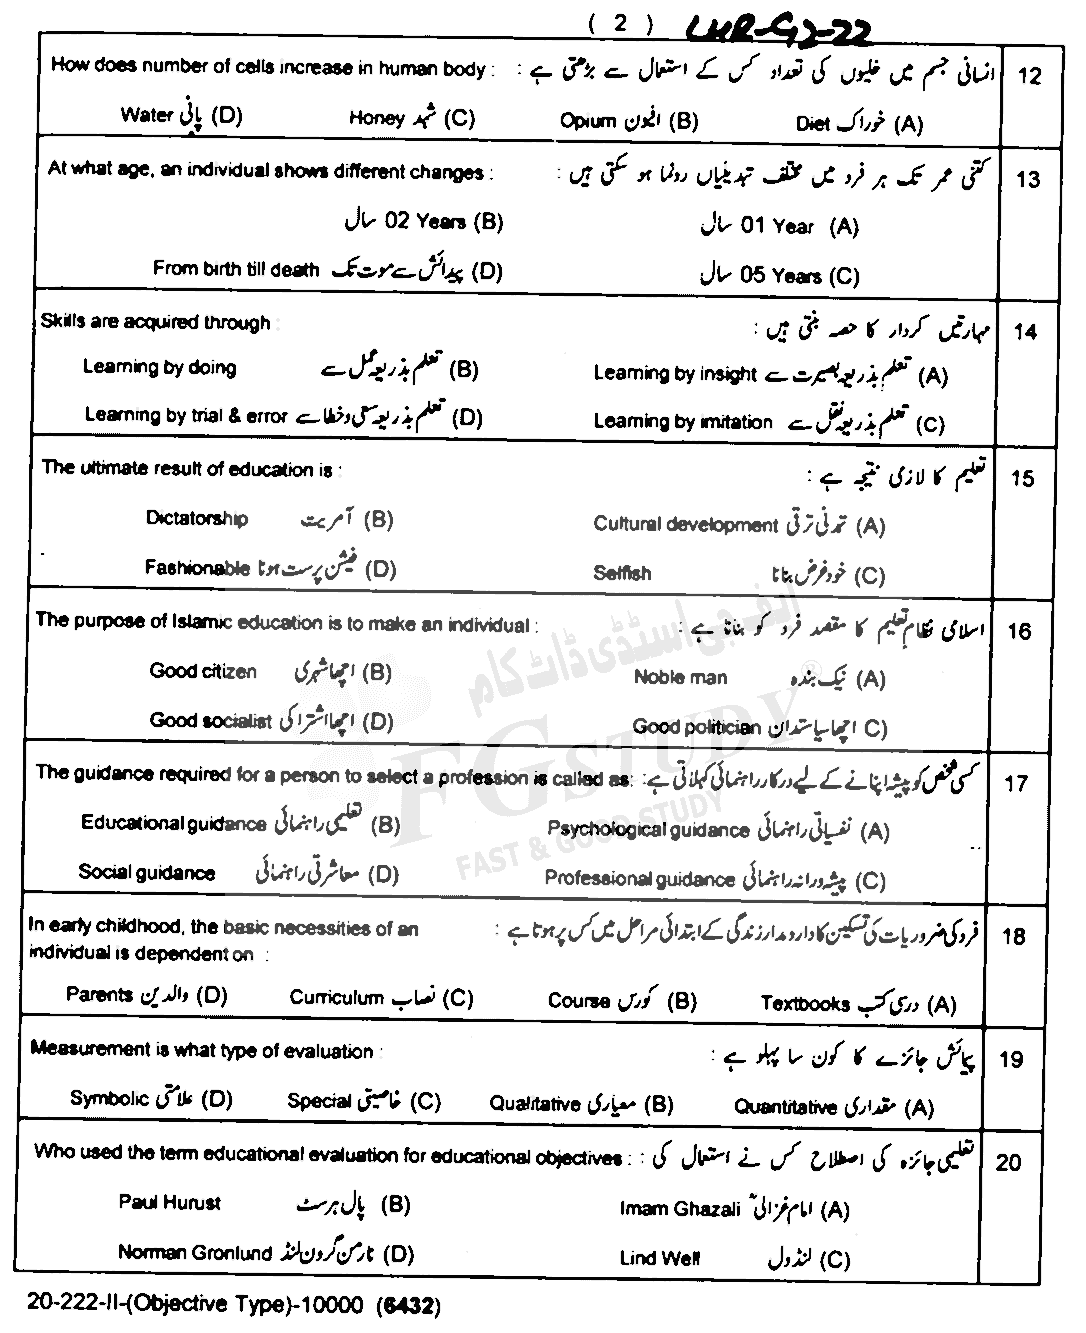 ( 2 ) LHR-G2-22
12 انسانی جسم میں خلیوں کی تعداد کس کے استعمال سے بڑھتی ہے : How does number of cells increase in human body :
(A) خوراک Diet (B) افیون Opium (C) شہد Honey (D) پانی Water
13 کتنی عمر تک ہر فرد میں مختلف تبدیلیاں رونما ہو سکتی ہیں : At what age, an individual shows different changes :
(A) 01 Year سال (B) 02 Years سال
(C) 05 Years سال (D) پیدائش سے موت تک From birth till death
14 مہارتیں کردار کا حصہ بنتی ہیں : Skills are acquired through :
(A) تعلم بذریعہ بصیرت سے Learning by insight (B) تعلم بذریعہ عمل سے Learning by doing
(C) تعلم بذریعہ نقل سے Learning by imitation (D) تعلم بذریعہ سعی و خطا سے Learning by trial & error
15 تعلیم کا لازمی نتیجہ ہے : The ultimate result of education is :
(A) تمدنی ترقی Cultural development (B) آمریت Dictatorship
(C) خود غرض بنانا Selfish (D) فیشن پرست ہونا Fashionable
16 اسلامی نظامِ تعلیم کا مقصد فرد کو بنانا ہے : The purpose of Islamic education is to make an individual :
(A) نیک بندہ Noble man (B) اچھا شہری Good citizen
C) اچھا سیاستدان Good politician (D) اچھا اشتراکی Good socialist
17 کسی شخص کو پیشہ اپنانے کے لیے درکار راہنمائی کہلاتی ہے : The guidance required for a person to select a profession is called as:
(A) نفسیاتی راہنمائی Psychological guidance (B) تعلیمی راہنمائی Educational guidance
(C) پیشہ ورانہ راہنمائی Professional guidance (D) معاشرتی راہنمائی Social guidance
18 فرد کی ضروریات کی تسکین کا دارومدار زندگی کے ابتدائی مراحل میں کس پر ہوتا ہے : In early childhood, the basic necessities of an
individual is dependent on :
(A) درسی کتب Textbooks (B) کورس Course (C) نصاب Curriculum (D) والدین Parents
19 پیمائش جائزے کا کون سا پہلو ہے : Measurement is what type of evaluation :
(A) مقداری Quantitative (B) معیاری Qualitative (C) خاصیتی Special (D) علامتی Symbolic
20 تعلیمی جائزہ کی اصطلاح کس نے استعمال کی : Who used the term educational evaluation for educational objectives :
(A) امام غزالیؒ Imam Ghazali (B) پال ہرسٹ Paul Hurust
(C) لنڈول Lind Well (D) نارمن گرون لنڈ Norman Gronlund
20-222-II-(Objective Type)-10000 (6432)
ایف جی اسٹڈی ڈاٹ کام
FGSTUDY ®
FAST & GOOD STUDY